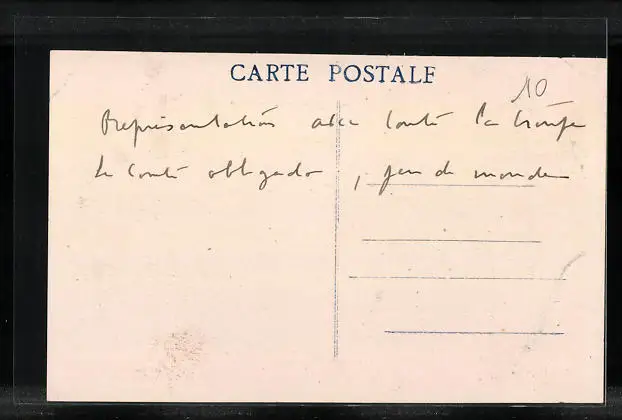 CARTE POSTALE
10
Représentation avec toute la troupe
Le Comte obligado, peu de monde